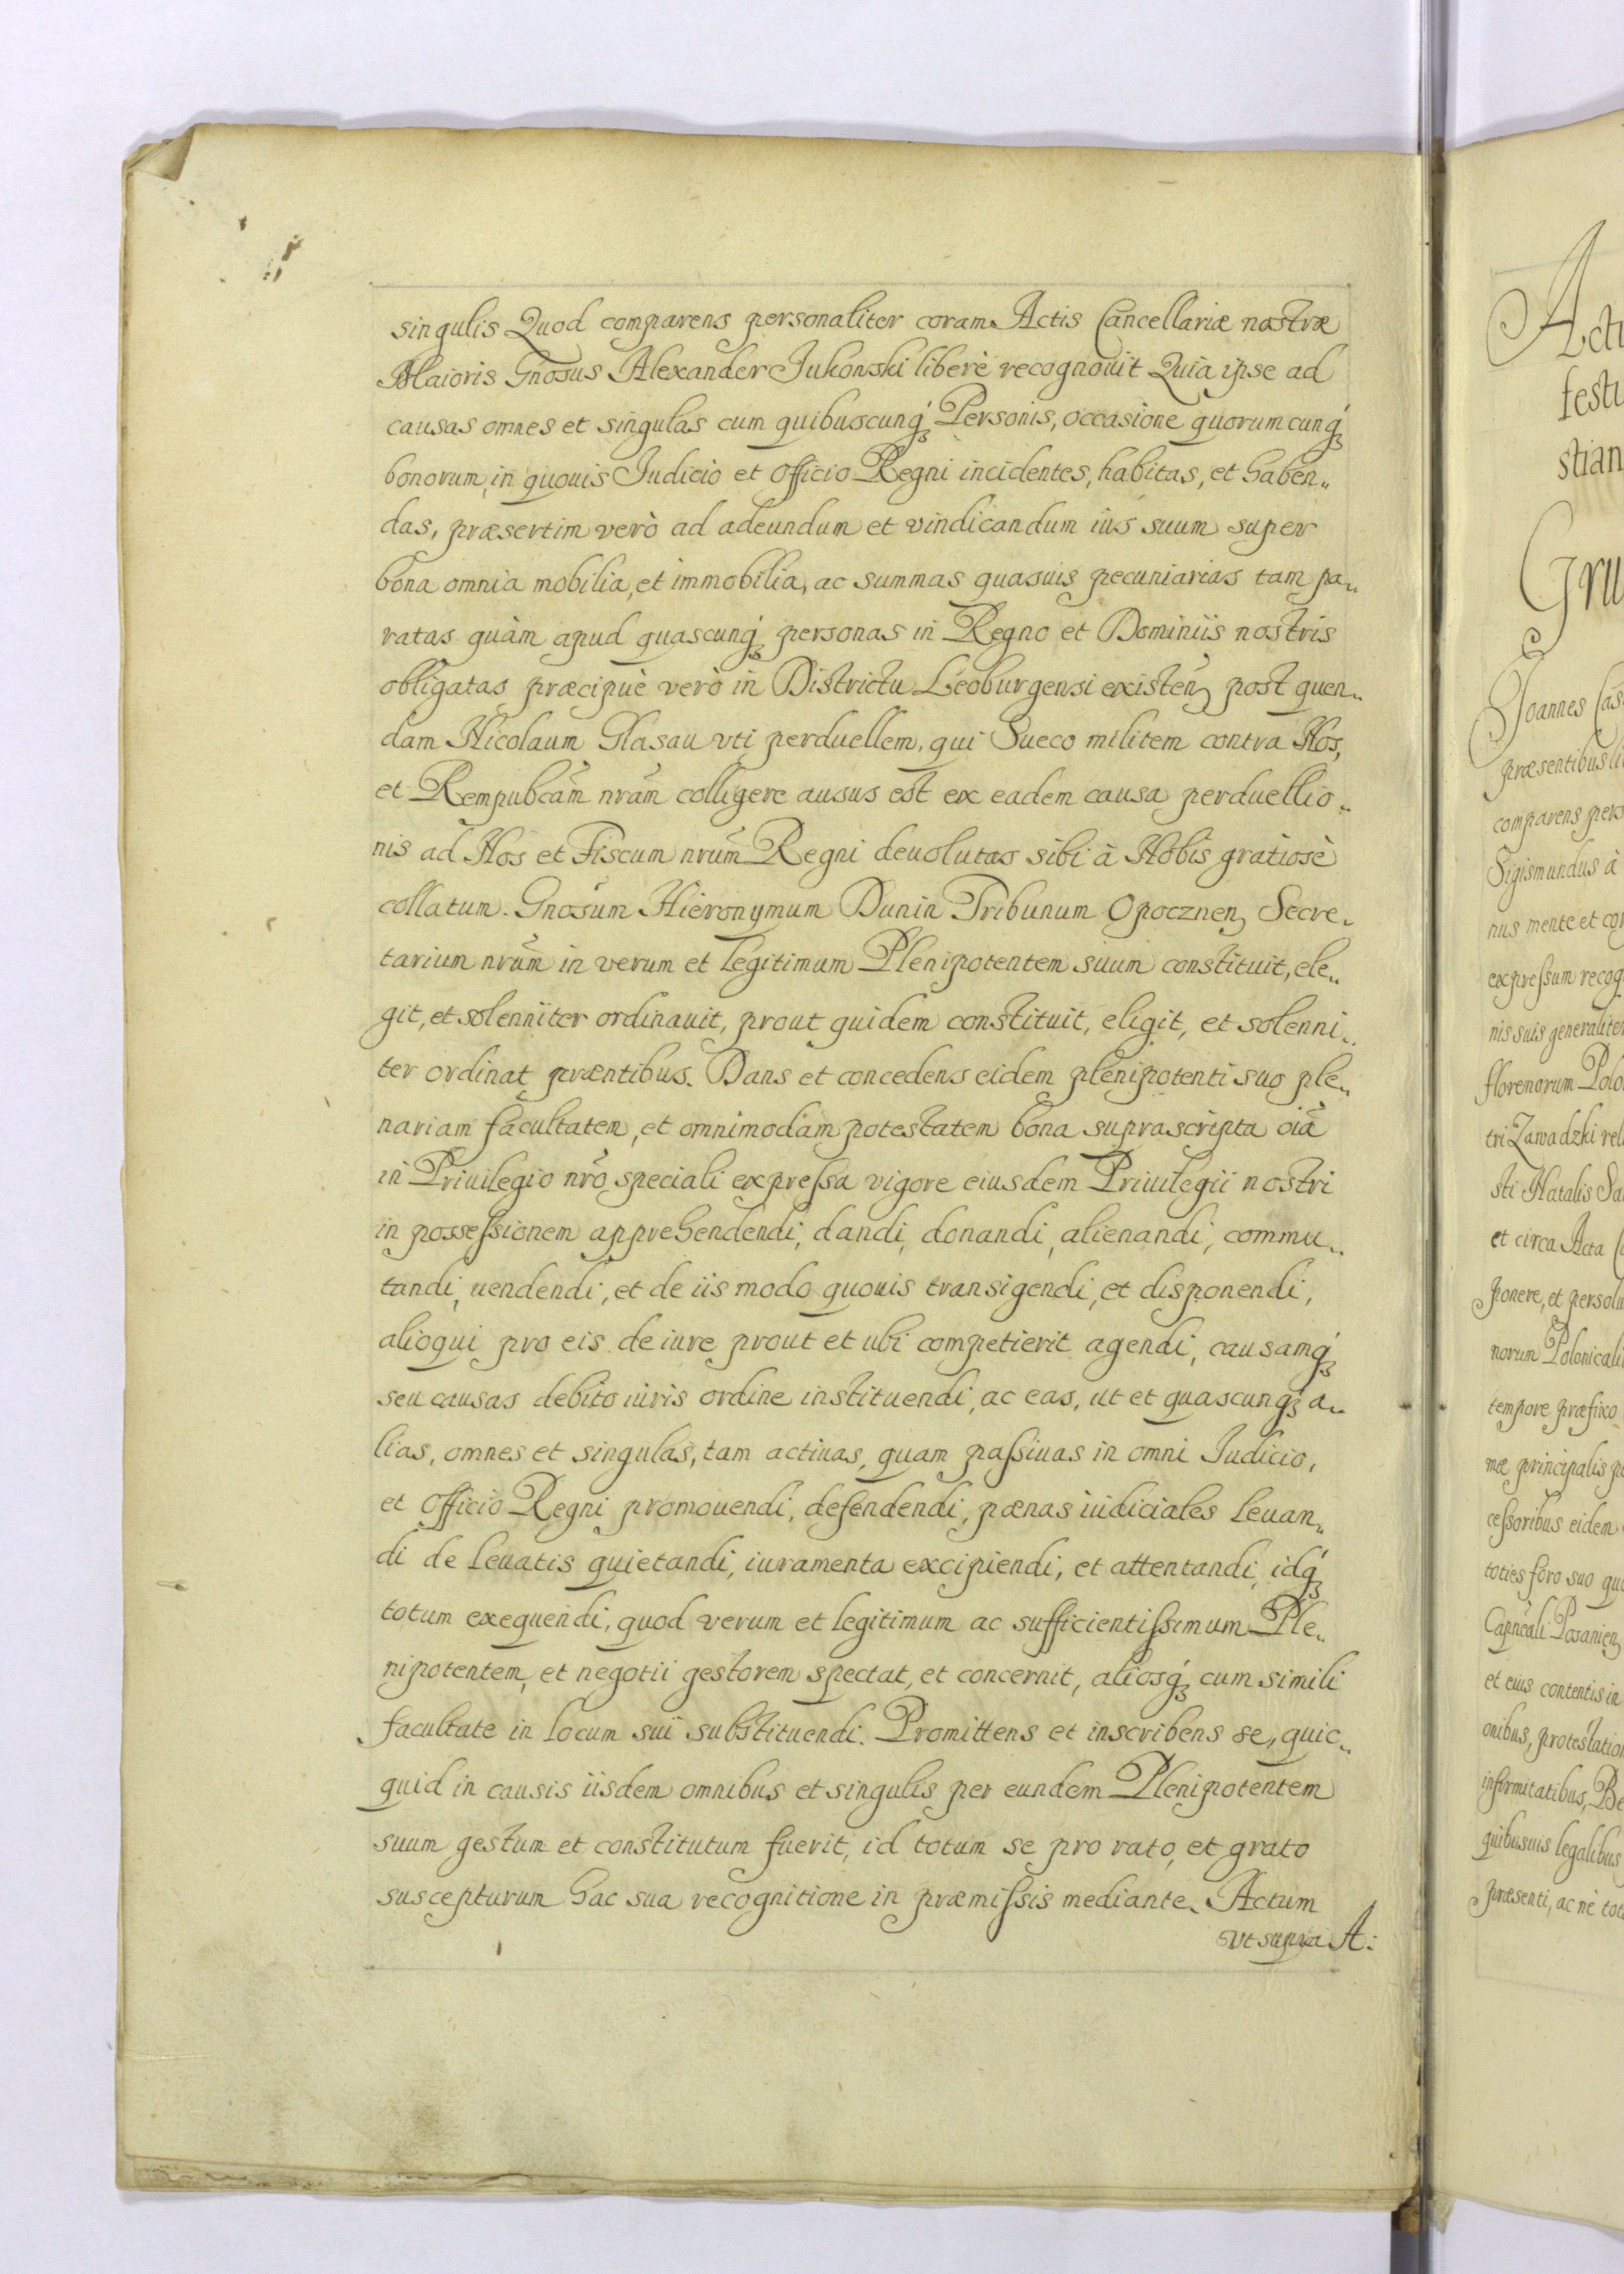 singulis Quod comparens personaliter coram Actis Cancellariæ nostræ
Maioris Gnosus Alexander Jukowski liberè recognouit Quia ipse ad
causas omnes et singulas cum quibuscunq́ꝫ Personis, occasione quorumcunq́ꝫ
bonorum, in quouis Judicio et Officio Regni incidentes, habitas, et haben„
das, præsertim verò ad adeundum et vindicandum ius suum super
bona omnia mobilia, et immobilia, ac summas quasuis pecuniarias tam pa„
ratas quàm apud quascunq́ꝫ personas in Regno et Dominiis nostris
obligatas præcipuè verò in Districtu Leoburgensi existen̄ post quen„
dam Nicolaum Glasau vti perduellem, qui Sueco militem contra Nos,
et Rempubcām nrām colligere ausus est ex eadem causa perduellio„
nis ad Nos et Fiscum nrūm Regni deuolutas sibi à Nobis gratiosè
collatum. Gnosūm Hieronymum Dunin Tribunum Opocznenꝫ Secre„
tarium nrūm in verum et legitimum Plenipotentem suum constituit, ele„
git, et solenniter ordinauit, prout quidem constituit, eligit, et solenni„
ter ordinat præntibus. Dans et concedens eidem plenipotenti suo ple„
nariam facultatem, et omnimodam potestatem bona suprascripta oīa
in Priuilegio nrō speciali expreſsa vigore eiusdem Priuilegii nostri
in posseſsionem apprehendendi, dandi, donandi, alienandi, commu„
tandi, uendendi, et de iis modo quouis transigendi, et disponendi,
alioqui pro eis de iure prout et ubi competierit agendi, causamq́ꝫ
seu causas debito iuris ordine instituendi, ac eas, ut et quascunq́ꝫ a„
lias, omnes et singulas, tam actiuas, quam paſsiuas in omni Judicio,
et Officio Regni promouendi, defendendi, pænas iudiciales leuan„
di de leuatis quietandi, iuramenta excipiendi, et attentandi, idq́ꝫ
totum exequendi, quod verum et legitimum ac sufficientiſsimum Ple„
nipotentem, et negotii gestorem spectat, et concernit, aliosq́ꝫ cum simili
facultate in locum sui substituendi. Promittens et inscribens se, quic„
quid in causis iisdem omnibus et singulis per eundem Plenipotentem
suum gestum et constitutum fuerit, id totum se pro rato, et grato
suscepturum hac sua recognitione in præmiſsis mediante. Actum
vt supra A:
Actu
festu
stian
Gru
Joannes Cas
præsentibus li
comparens pers
Sigismundus à
nus mente et cor
expreſsum recog
nis suis generaliter
florenorum Polo
tri Zawadzki rel
sti Natalis Sa
et circa Acta C
ponere, et persolu
norum Polonicali
tempore præfixo
mæ principalis p
ceſsoribus eidem
toties foro suo qu
Capnēali Posanienꝫ
et eius contentis in
onibus, protestation
infirmitatibus, Be
quibusuis legalibus
præsenti, ac ne tot